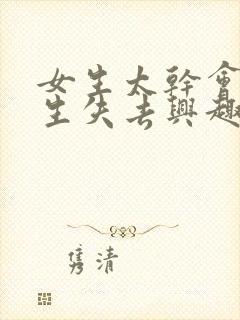 女生太幹會
生失去興趣
隽清